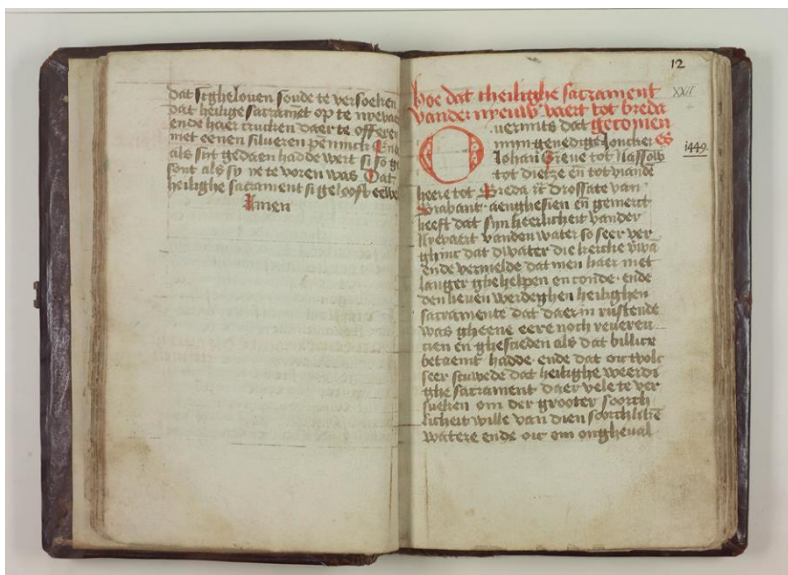 dat segheloven soude te versoeken
dat heilige sacramet op te nyeva
ende haer trucken daer te offeren
met eenen silveren pennick En
als sijt gedaen hadde wert si so ge
sont als sy ye te voren was Dat
heilighe sacrament si geloeft eewe
Amen
12
hoe dat theilighe sacrament
vander nyeuw vaert tot breda
gecomen
es
XXII
Overmits dat
mijn genedige Joncher
i449
Johan Greve tot Nassow
tot dietze en tot viande
heere tot Breda en drossate van
Brabant aenghesien en gemerct
heeft dat sijn heerlicheit vander
Nyevaert vanden water so seer ver
ghinc dat dwater die kercke
ende vernielde dat men haer niet
langer ghehelpen en conde ende
den lieven werdeghen heilighen
sacramente dat daer in rustende
was gheene eere noch reveren
cien en ghescieden als dat billicx
betaemt hadde ende dat oic tvolc
seer scuwede dat heilighe weerdi
ghe sacrament daer vele te ver
sueken om der grooter sorch
licheit wille van dien sorchlike
watere ende oic om ongheval